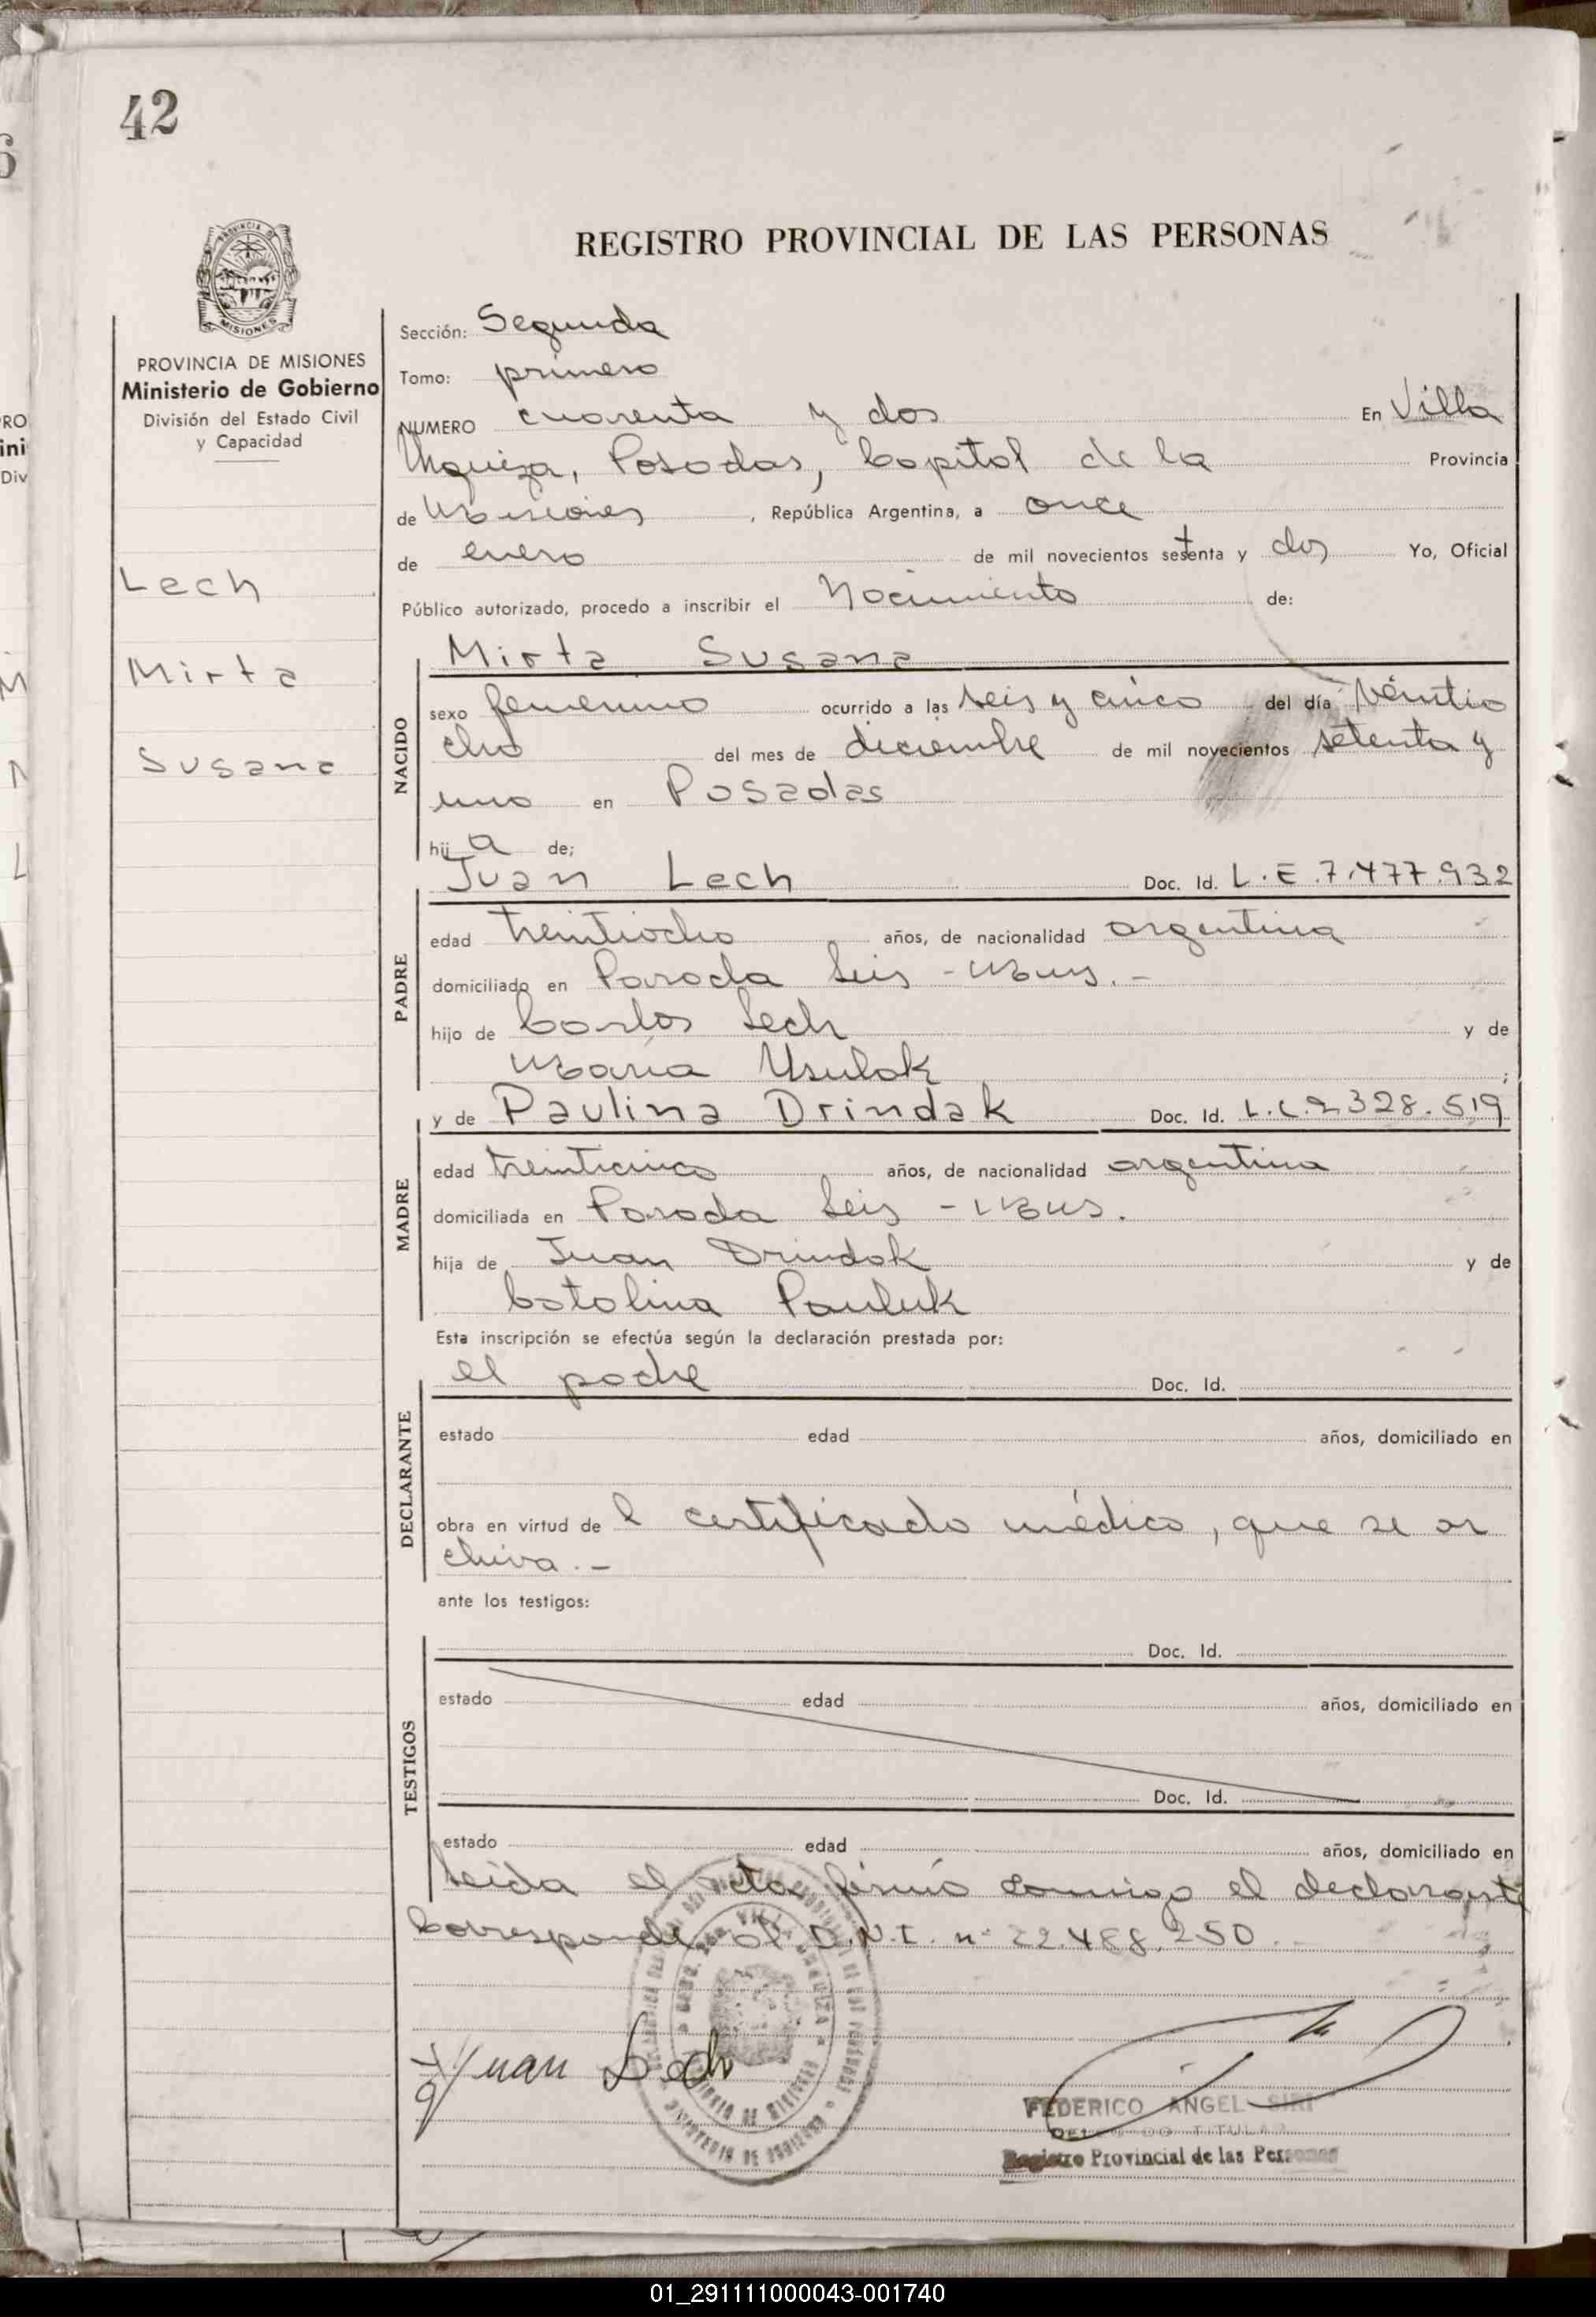 42
REGISTRO PROVINCIAL DE LAS PERSONAS
MISIONES
PROVINCIA DE MISIONES
Ministerio de Gobierno
División del Estado Civil
y Capacidad
Lech
Mirta
Susana
Sección: Segunda
Tomo: primero
NUMERO cuarenta y dos En Villa
Urquiza, Posadas, Capital de la Provincia
de Misiones, República Argentina, a once
de enero de mil novecientos setenta y dos Yo, Oficial
Público autorizado, procedo a inscribir el Nacimiento de:
NACIDO
Mirta Susana
sexo femenino ocurrido a las seis y cinco del día veintio
cho del mes de diciembre de mil novecientos setenta y
uno en Posadas
hij a de;
PADRE
Juan Lech Doc. Id. L.E. 7.477.932
edad treintiocho años, de nacionalidad argentina
domiciliado en Parada Leis - Mnes. -
hijo de Carlos Lech y de
María Usulak ;
MADRE
y de Paulina Drindak Doc. Id. L.C. 2328.519
edad treinticinco años, de nacionalidad argentina
domiciliada en Parada Leis - Mnes.
hija de Juan Drindak y de
Catalina Pauluk
Esta inscripción se efectúa según la declaración prestada por:
DECLARANTE
el padre Doc. Id.
estado edad años, domiciliado en
obra en virtud de l certificado médico, que se ar
chiva. -
ante los testigos:
TESTIGOS
Doc. Id.
estado edad años, domiciliado en
Doc. Id.
estado edad años, domiciliado en
Leída el acta firmó conmigo el declarante
Corresponde al D.N.I. nº 22.488.250.
Juan Lech
FEDERICO ANGEL SIRI
TITULAR
Registro Provincial de las Personas
01_291111000043-001740